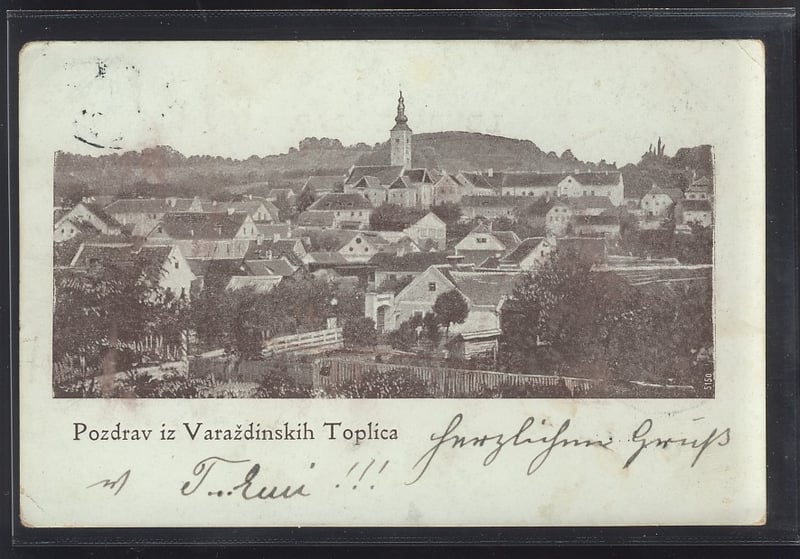 5150
Pozdrav iz Varaždinskih Toplica
herzlichen Gruß
v !!!